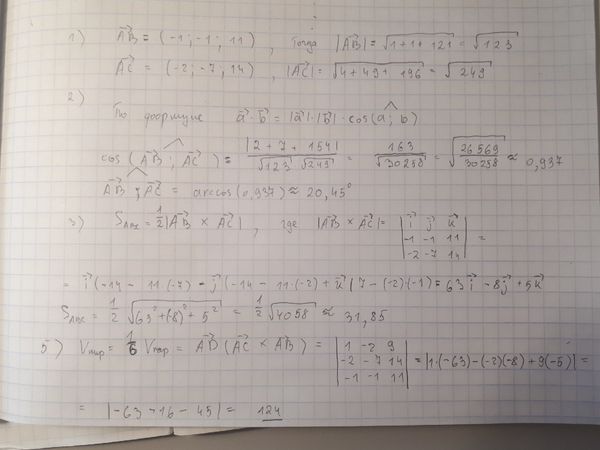 1) AB⃗ = (-1; -1; 11), тогда |AB⃗| = √(1+1+121) = √123
AC⃗ = (-2; -7; 14), |AC⃗| = √(4+49+196) = √249
2)
По формуле a⃗·b⃗ = |a⃗|·|b⃗|·cos(a; b)
cos(AB⃗; AC⃗) = |2+7+154| / (√123 √249) = 163/√30258 = √(26569/30258) ≈ 0,937
AB⃗; AC⃗ = arccos(0,937) ≈ 20,45°
3) S_ABC = 1/2 |AB⃗ × AC⃗|, где |AB⃗ × AC⃗| = | i⃗ j⃗ k⃗ |
-1 -1 11 | =
-2 -7 14 |
= i⃗(-14 - 11·(-7) - j⃗(-14 - 11·(-2) + k⃗ | 7 - (-2)(-1) = 63i⃗ - 8j⃗ + 5k⃗
S_ABC = 1/2 √(63² + (-8)² + 5²) = 1/2 √4058 ≈ 31,85
5) V пир = 1/6 V пар = AD⃗(AC⃗ × AB⃗) = | 1 -2 9 |
-2 -7 14 | = |1·(-63) - (-2)(-8) + 9(-5)| =
-1 -1 11 |
= |-63 - 16 - 45| = 124